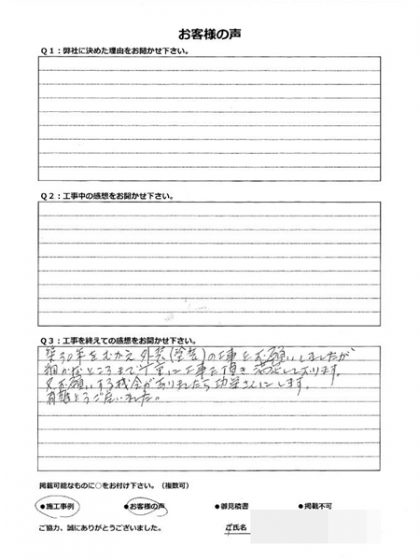 お客様の声
Q1：弊社に決めた理由をお聞かせ下さい。
Q2：工事中の感想をお聞かせ下さい。
Q3：工事を終えての感想をお聞かせ下さい。
築30年をむかえ 外装(塗装)の工事をお願いしましたが
細かなところまで丁寧に工事を頂き 満足しております。
又お願いする機会がありましたら さんにします。
有難とうございました。
掲載可能なものに○をお付け下さい。（複数可）
●施工事例 ●お客様の声 ●御見積書 ●掲載不可
ご協力、誠にありがとうございました。
ご氏名